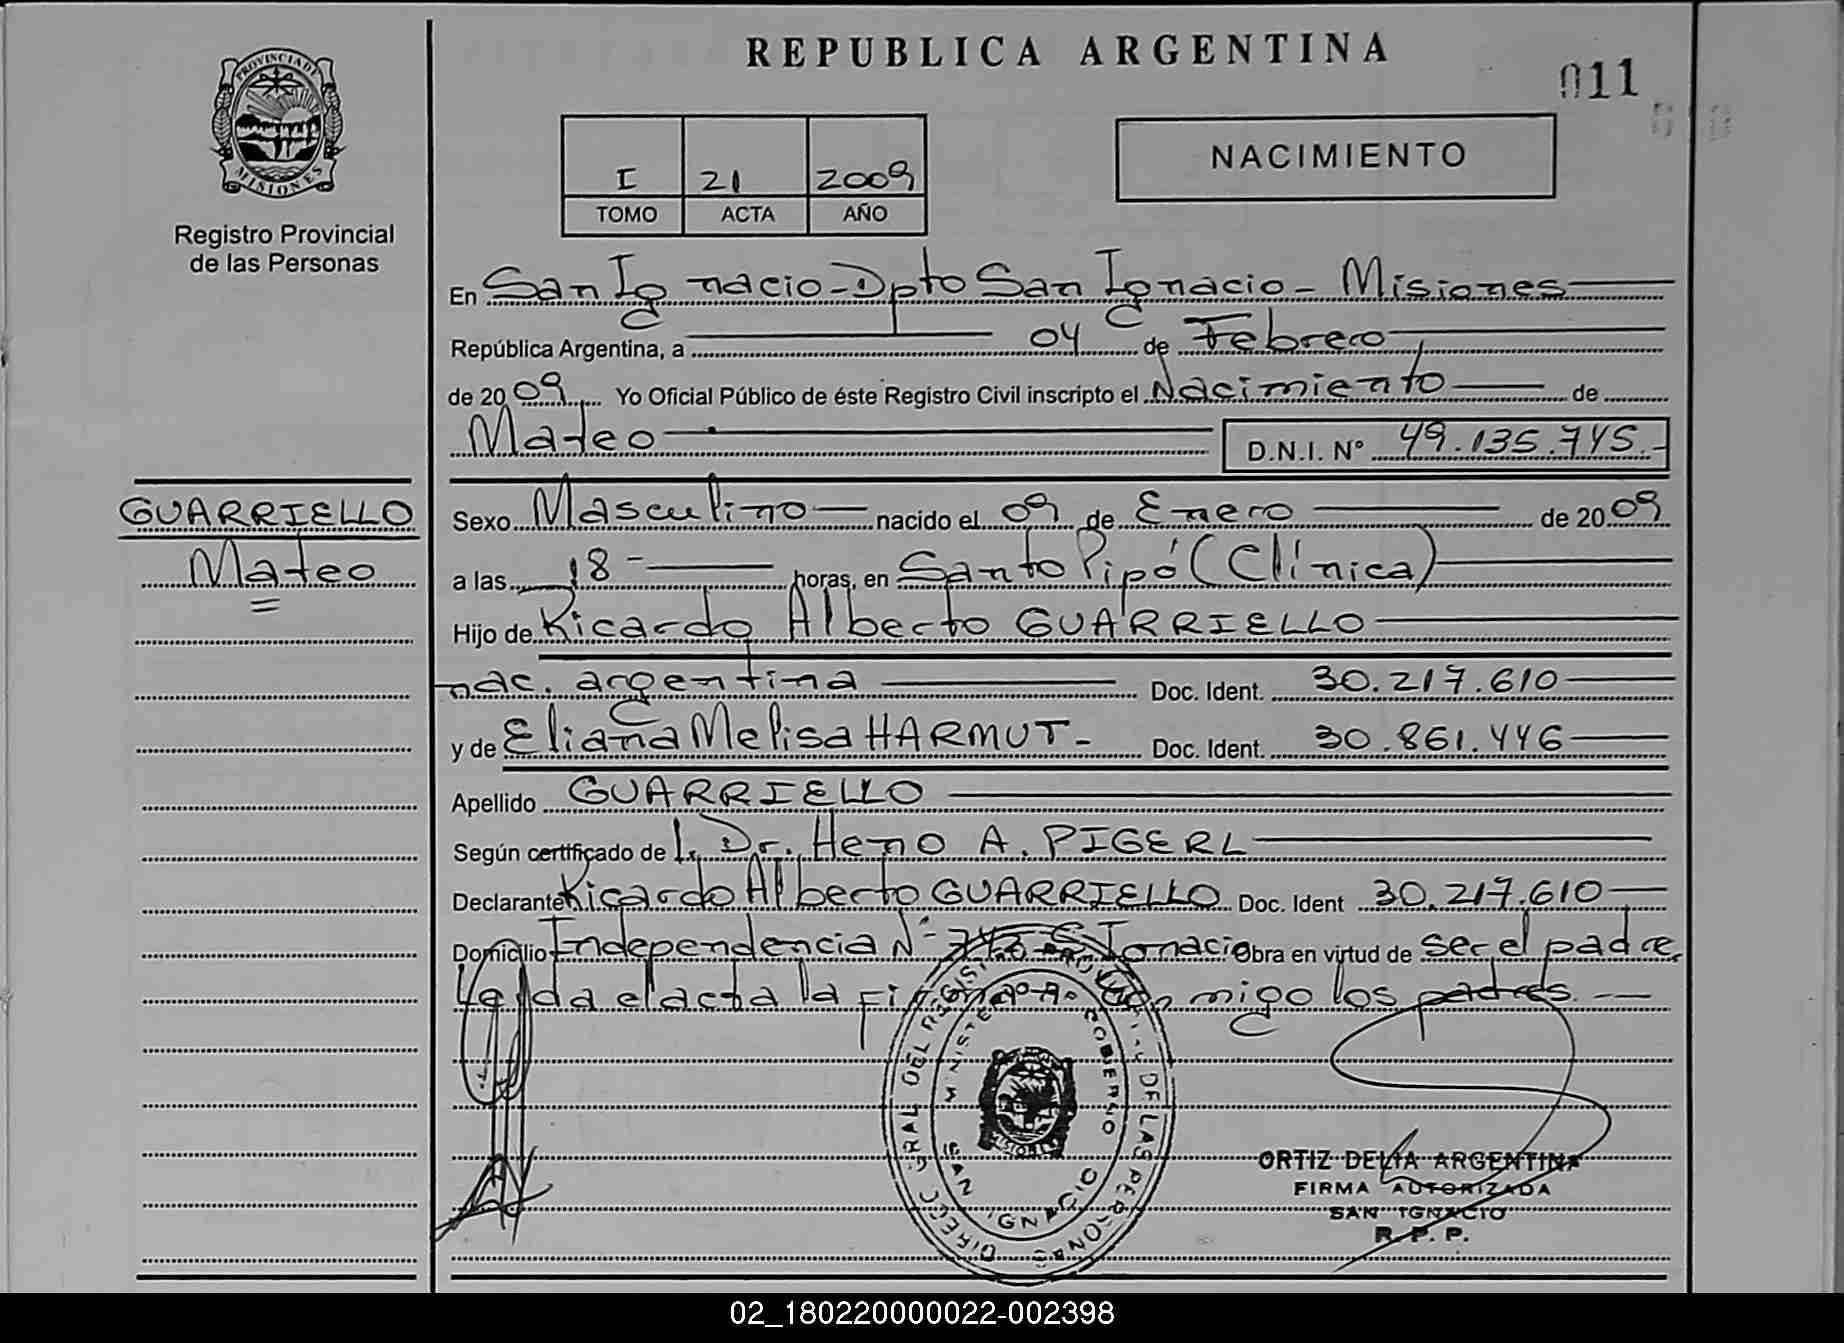 REPUBLICA ARGENTINA
011
PROVINCIA DE
MISIONES
Registro Provincial
de las Personas
I 21 2009
TOMO ACTA AÑO
NACIMIENTO
En San Ignacio - Dpto San Ignacio - Misiones
República Argentina, a 04 de Febrero
de 2009 Yo Oficial Público de éste Registro Civil inscripto el Nacimiento de
Mateo D.N.I. N° 49.135.745.-
GUARRIELLO
Mateo
Sexo Masculino nacido el 09 de Enero de 2009
a las 18 - horas, en Santo Pipó (Clínica)
Hijo de Ricardo Alberto GUARRIELLO
nac. argentina Doc. Ident. 30.217.610
y de Eliana Melisa HARMUT - Doc. Ident. 30.861.446
Apellido GUARRIELLO
Según certificado de l. Dr. Heno A. PIGERL
Declarante Ricardo Alberto GUARRIELLO Doc. Ident 30.217.610
Domicilio Independencia N° S. Ignacio Obra en virtud de ser el padre,
Leida el acta la conmigo los padres.
DIREC. GRAL DEL REGISTRO PROVINCIAL DE LAS PERSONAS
MINISTERIO DE GOBIERNO
SAN IGNACIO
ORTIZ DELIA ARGENTINA
FIRMA AUTORIZADA
SAN IGNACIO
R. P. P.
02_180220000022-002398